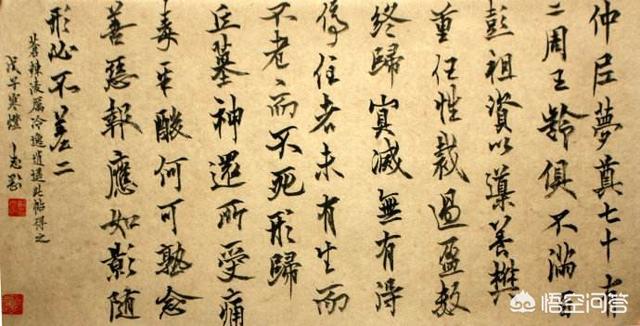 仲尼夢奠七十有
二周王齡俱不滿百
彭祖資以導養樊
重任性裁過盈數
終歸冥滅無有得
停住者未有生而
不老〻而不死形歸
丘墓神還所受痛
毒辛酸何可熟念
善惡報應如影隨
形必不差二
蒼辣淩厲冷逸此帖得之
戊午寒燈
悟空问答